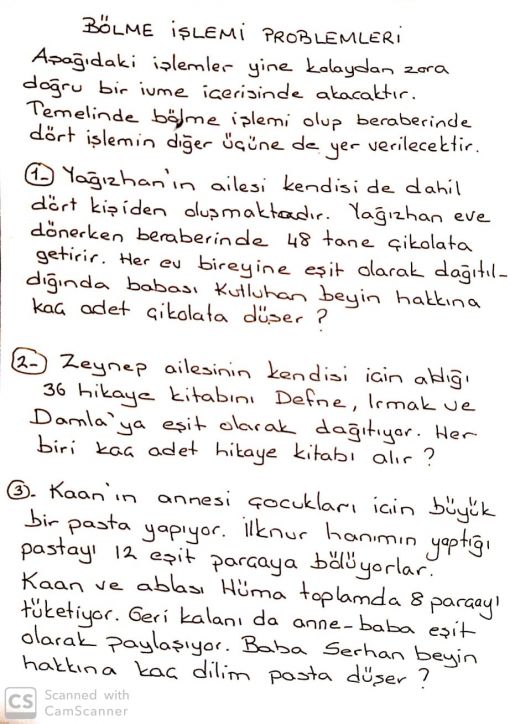 BÖLME İŞLEMİ PROBLEMLERİ
Aşağıdaki işlemler yine kolaydan zora
doğru bir ivme içerisinde akacaktır.
Temelinde bölme işlemi olup beraberinde
dört işlemin diğer üçüne de yer verilecektir.
1- Yağızhan'ın ailesi kendisi de dahil
dört kişiden oluşmaktadır. Yağızhan eve
dönerken beraberinde 48 tane çikolata
getirir. Her ev bireyine eşit olarak dağıtıl-
dığında babası Kutluhan beyin hakkına
kaç adet çikolata düşer ?
2- Zeynep ailesinin kendisi için aldığı
36 hikaye kitabını Defne, Irmak ve
Damla'ya eşit olarak dağıtıyor. Her
biri kaç adet hikaye kitabı alır ?
3. Kaan'ın annesi çocukları için büyük
bir pasta yapıyor. İlknur hanımın yaptığı
pastayı 12 eşit parçaya bölüyorlar.
Kaan ve ablası Hüma toplamda 8 parçayı
tüketiyor. Geri kalanı da anne-baba eşit
olarak paylaşıyor. Baba Serhan beyin
hakkına kaç dilim pasta düşer ?
CS Scanned with
CamScanner